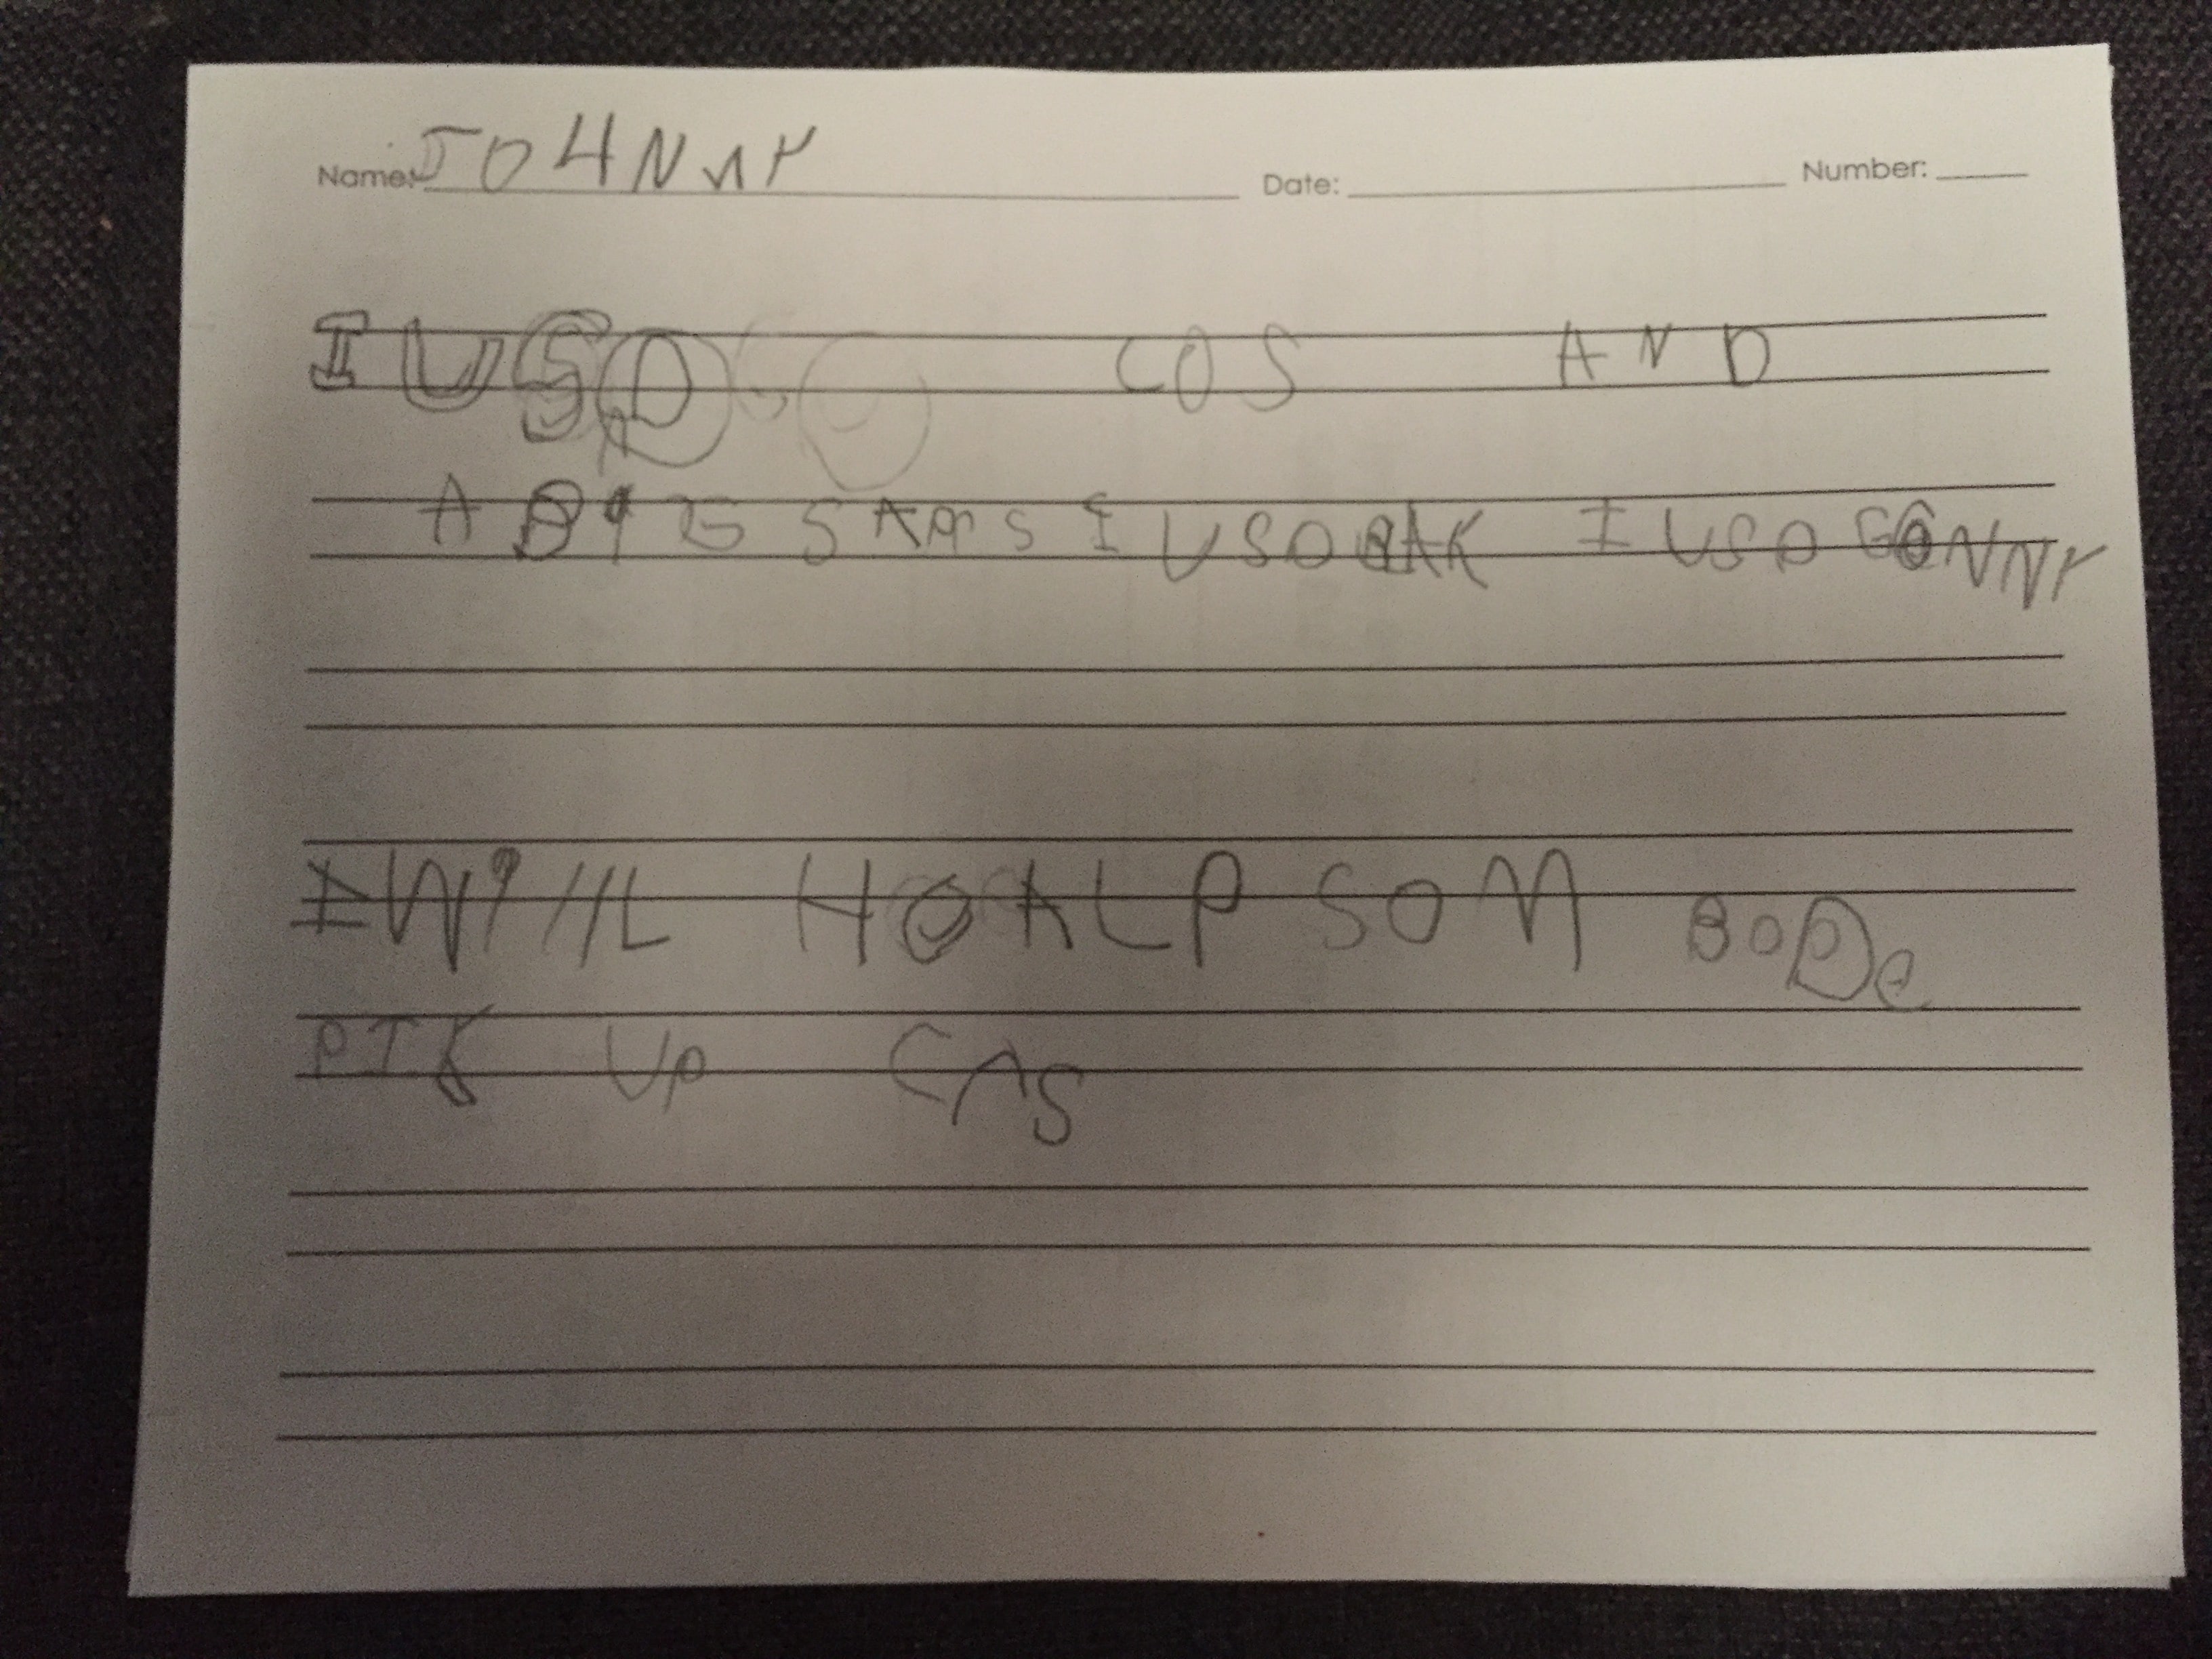 Name: JOHNNY Date: Number:
I USD COS AND
A BIG SAMS I USD BAK I USD GONNY
I WILL HOALP SOM BODe
PIK UP CAS